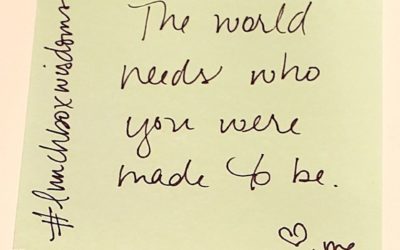 The world
needs who
you were
made to be.
♡, me
#lunchboxwisdoms